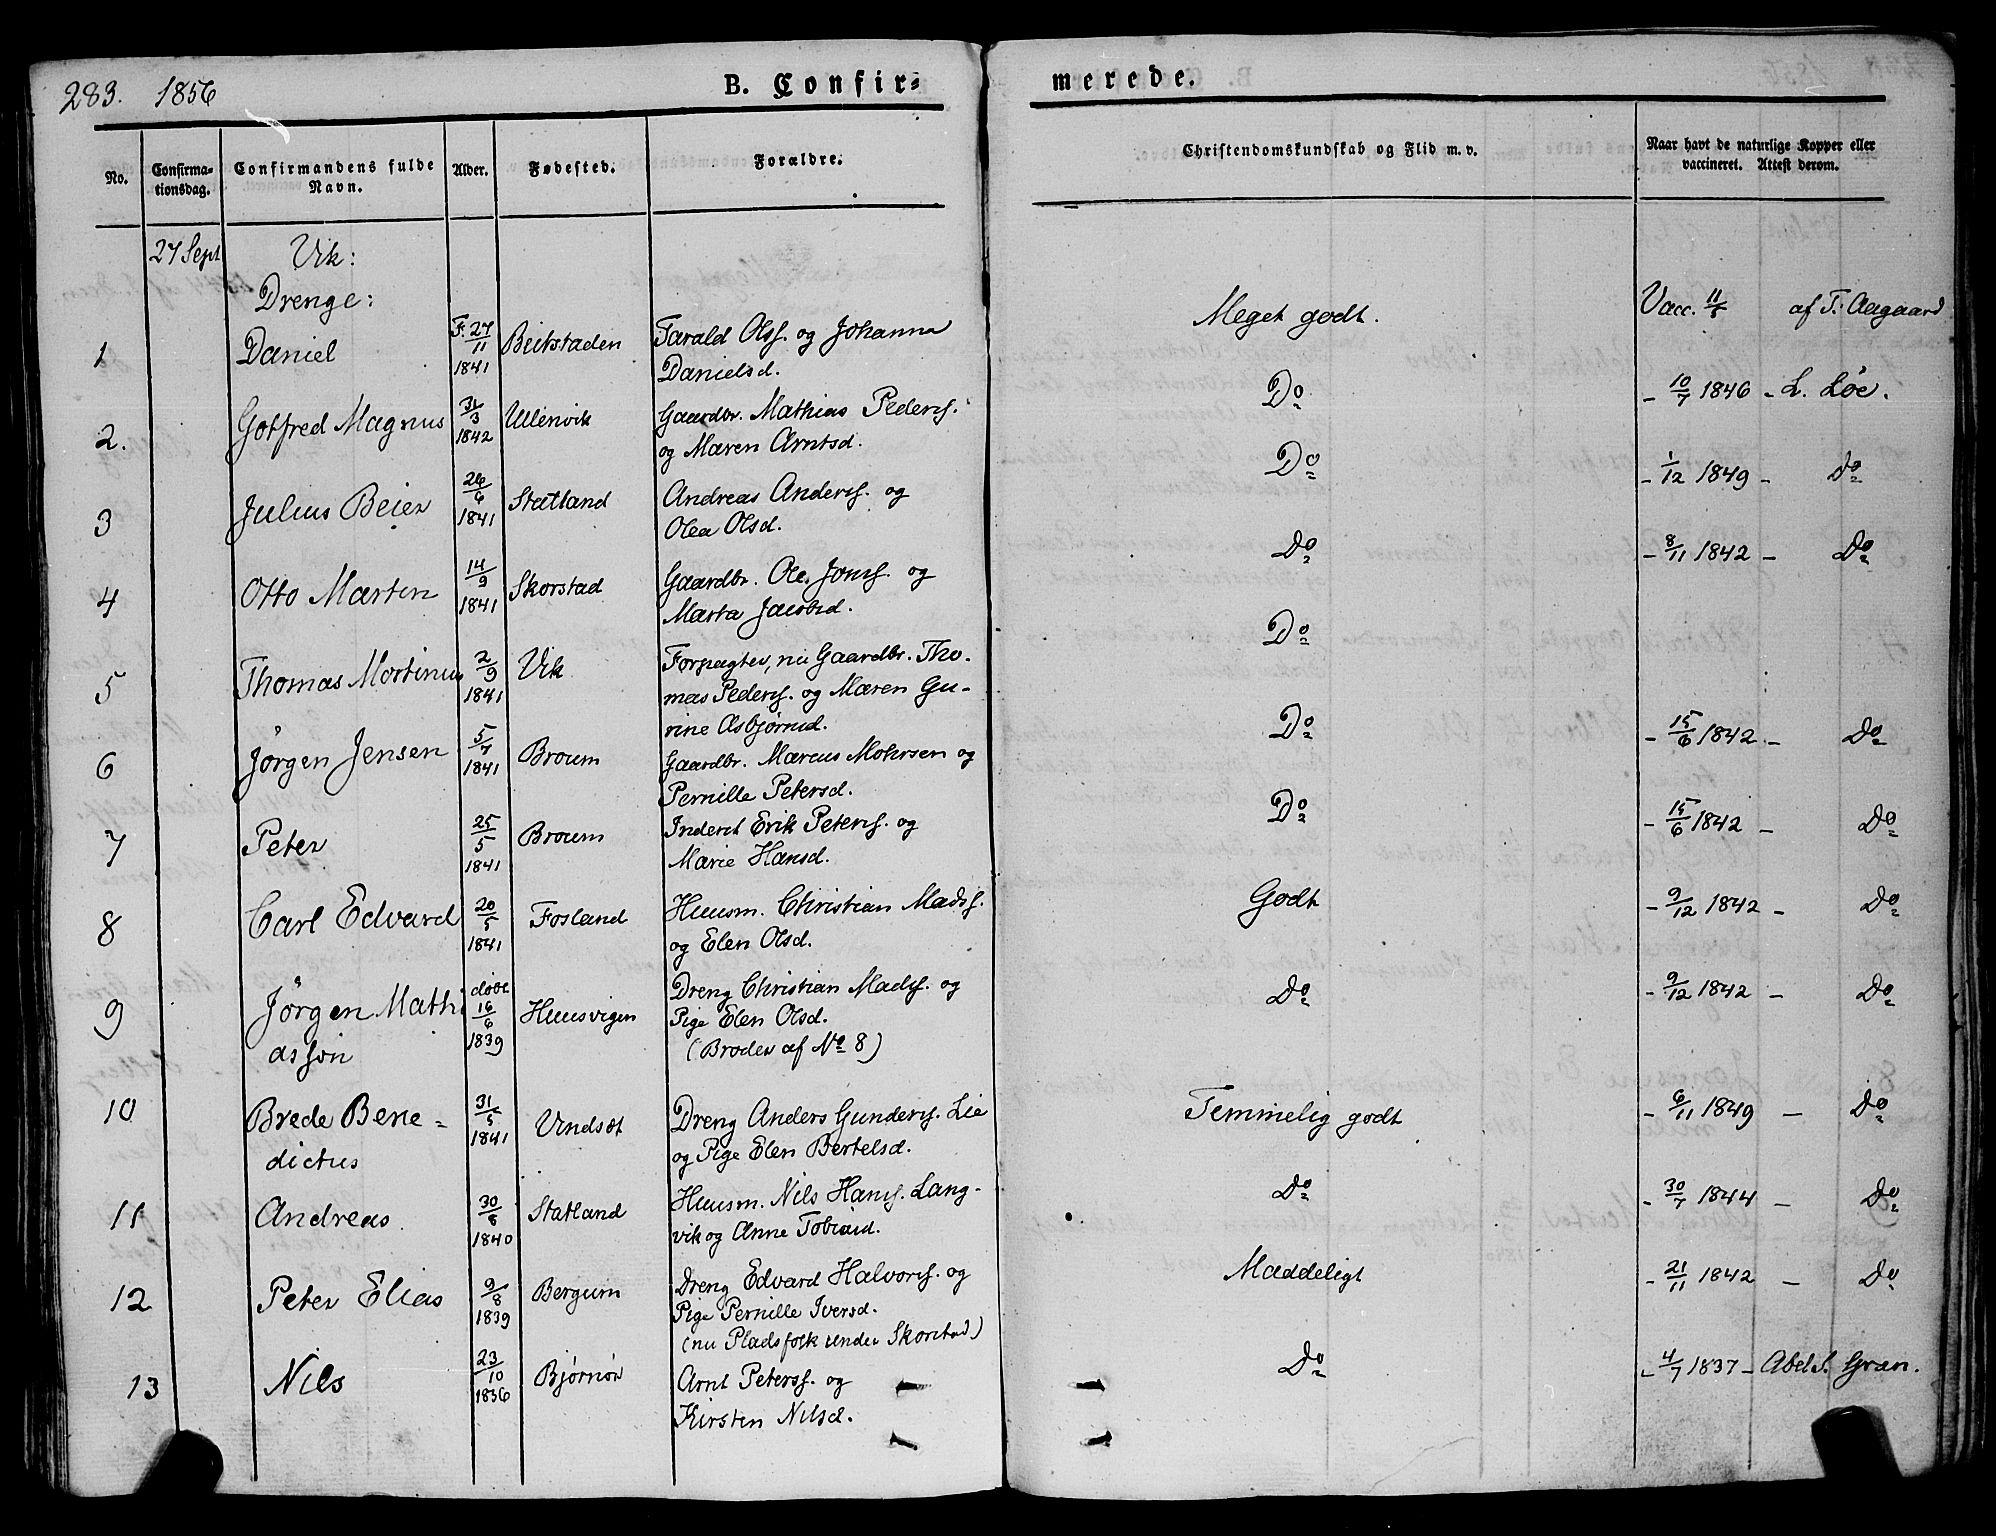 283. 1856 B. Confir= merede.
No. Confirma-tionsdag. Confirmandens fulde Navn. Alder. Fødested. Forældre. Christendomskundskab og Flid m. v. Naar havt de naturlige Kopper eller vaccineret. Attest derom.
27 Sept Vik:
Drenge:
1 Daniel F. 27/11 1841 Beitstaden Tarald Olss. og Johanna Meget godt. Vacc. 11/8 af T. Aagaard
Danielsd.
2. Gotfred Magnus 31/3 1842 Ullenvik Gaardbr. Mathias Peders. Do - 10/7 1846 - L. Løe.
og Maren Arntsd.
3 Julius Beier 26/6 1841 Statland Andreas Anders. og Do - 1/12 1849 - Do
Olea Olsd.
4 Otto Martin 14/9 1841 Skorstad Gaardbr. Ole Jons. og Do - 8/11 1842 - Do
Marta Jacobsd.
5 Thomas Mortinus 2/9 1841 Vik Forpagter, nu Gaardbr. Tho- Do
mas Peders. og Maren Gu-
rine Asbjørnsd.
6 Jørgen Jensen 5/7 1841 Broum Gaardbr. Marcus Mohrsen og Do - 15/6 1842 - Do
Pernille Petersd.
7 Peter 25/5 1841 Broum Inderst Erik Peters. og Do - 15/6 1842 - Do
Marie Hansd.
8 Carl Edvard 20/5 1841 Fosland Huusm. Christian Mads. Godt - 9/12 1842 - Do
og Elen Olsd.
9 Jørgen Mathi døbt 16/6 1839 Huusvigen Dreng Christian Mads. og Do - 9/12 1842 - Do
assøn Pige Elen Olsd.
(Broder af No 8)
10 Brede Bene= 31/5 1841 Vindsæt Dreng Anders Gunders. Lie Temmelig godt - 6/11 1849 - Do
dictus og Pige Elen Bertelsd.
11 Andreas. 30/8 1840 Statland Huusm. Nils Hans. Lang- Do - 30/7 1844 - Do
vik og Anne Tobiasd.
12 Peter Elias 9/8 1839 Bergum Dreng Edvard Halvors. og Maadeligt - 21/11 1842 - Do
Pige Pernille Iversd.
(nu Pladsfolk under Skorstad)
13 Nils 23/10 1836 Bjørnør Arnt Peterss. og Do - 4/7 1837 - Abel S. Gran.
Kirsten Nilsd.